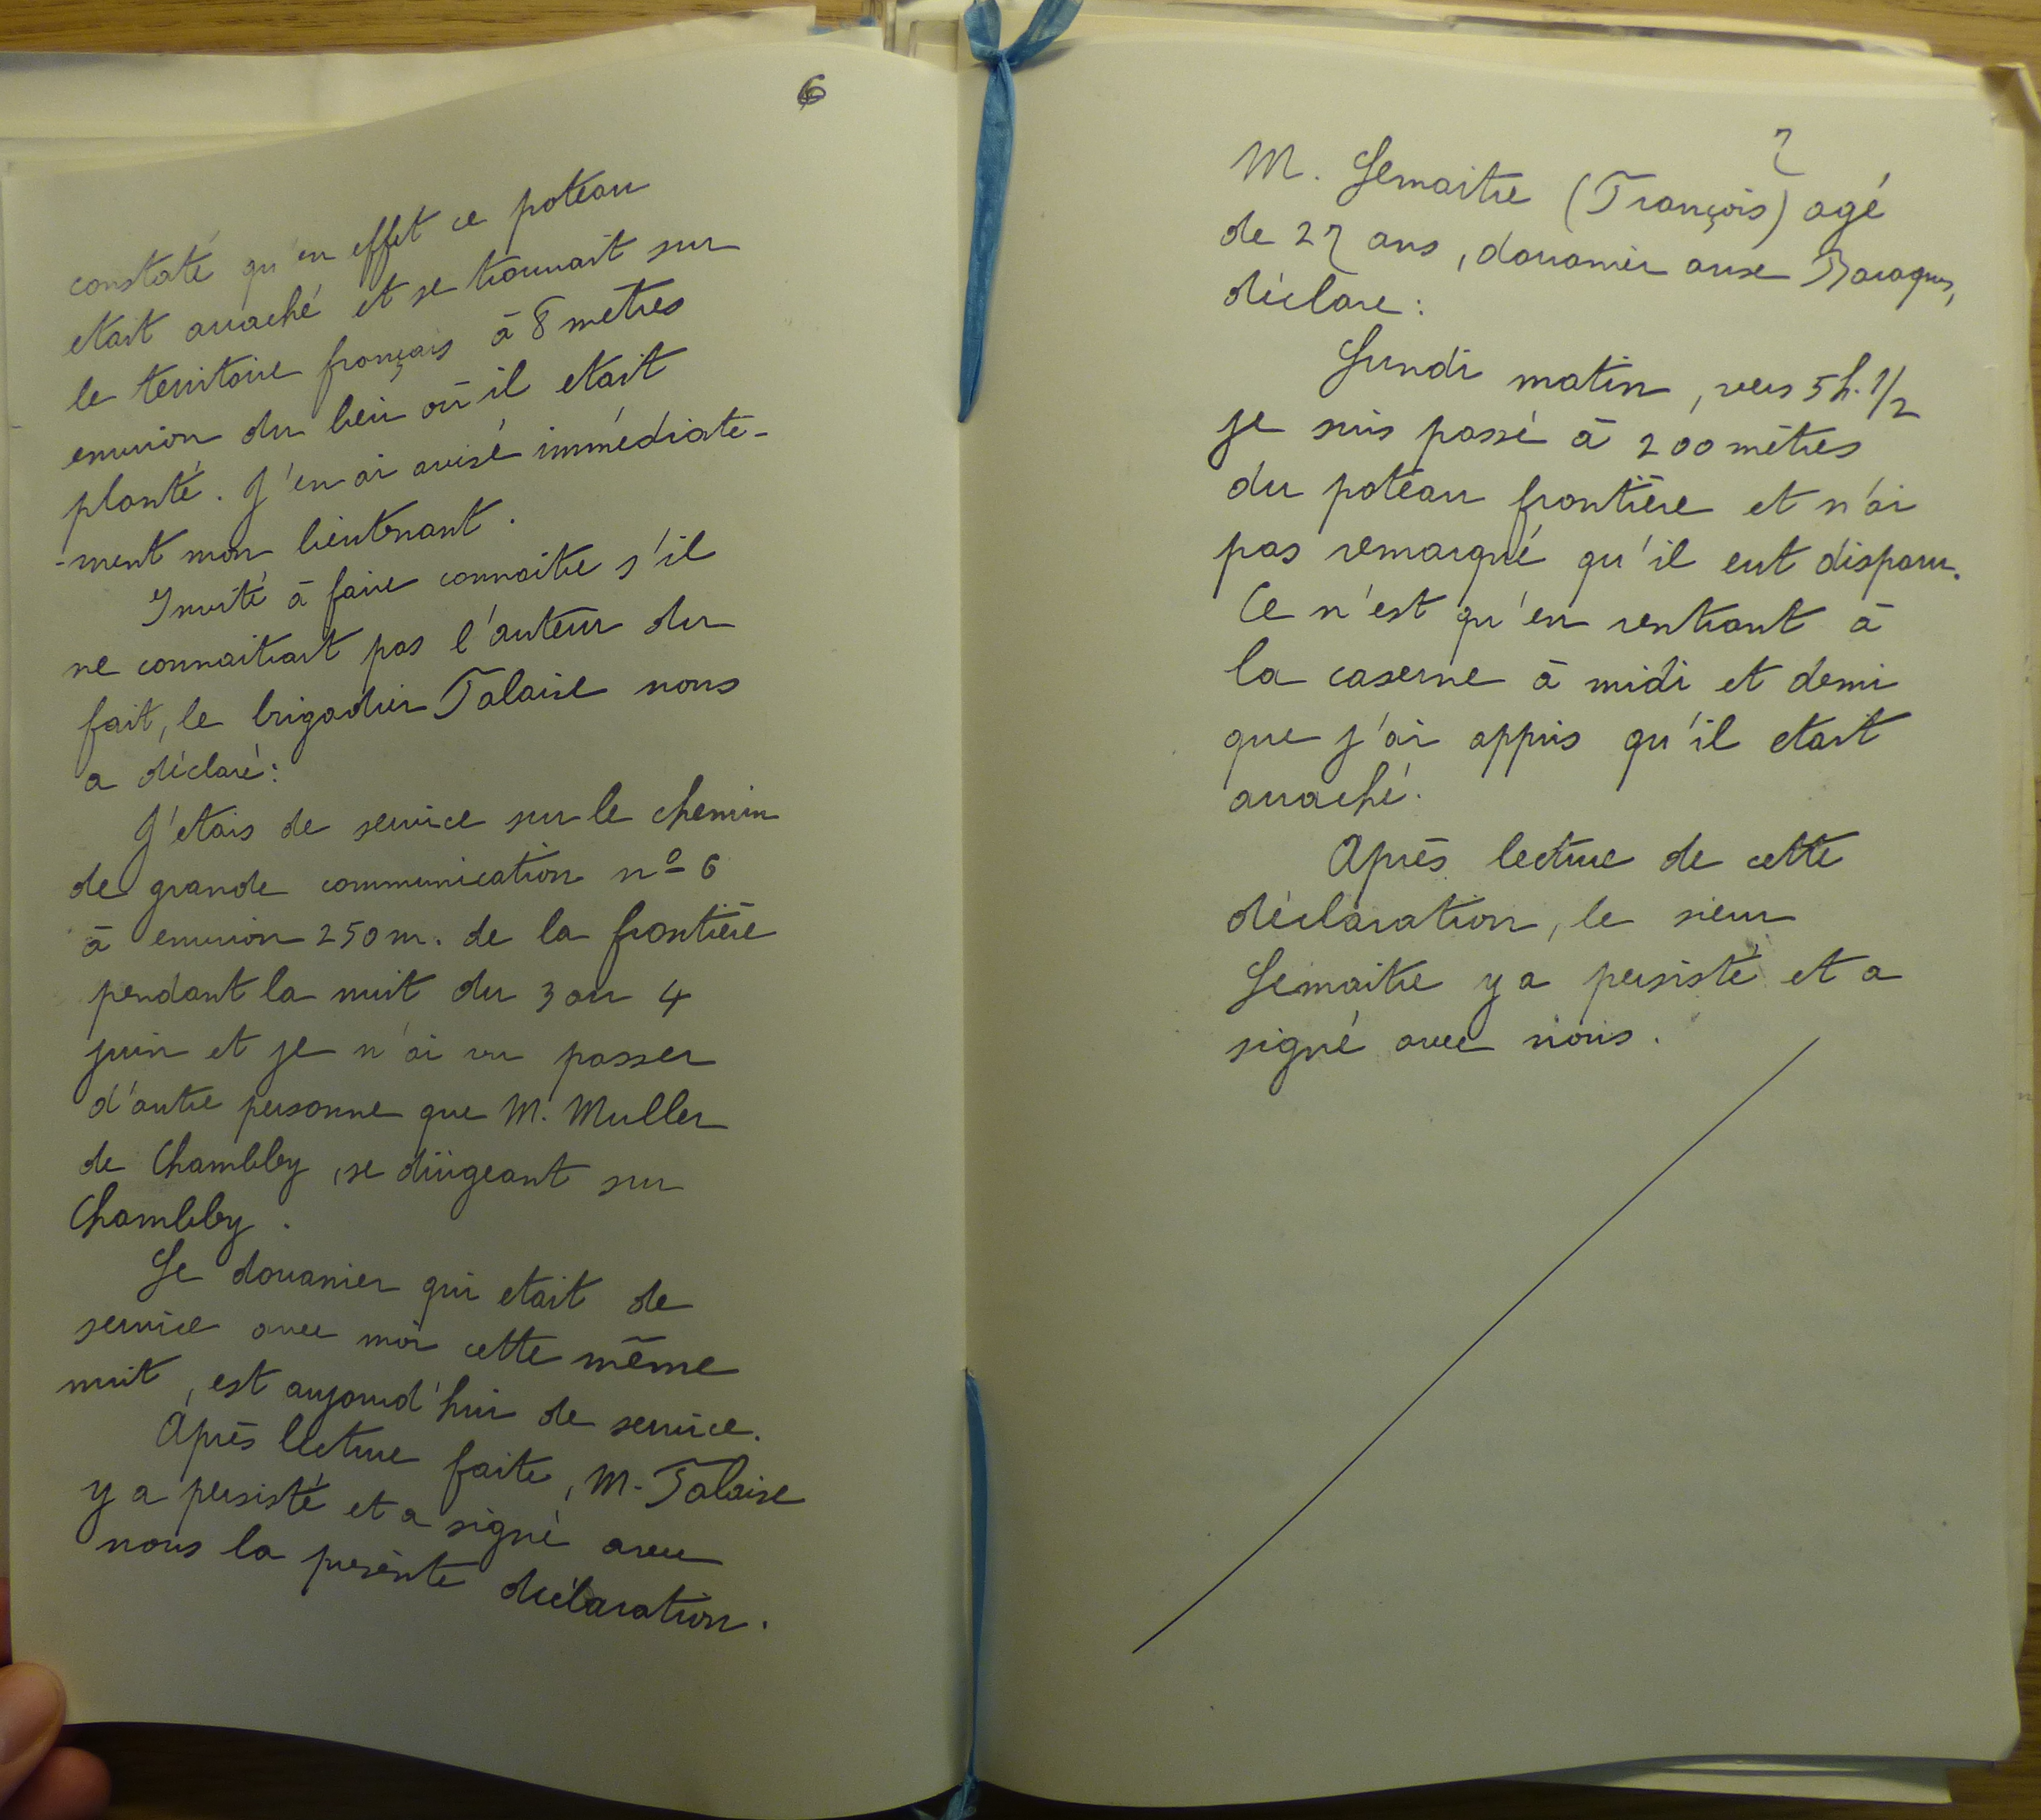 6
constaté qu'en effet ce poteau
etait arraché et se trouvait sur
le territoire français à 8 metres
environ du lieu où il etait
planté. J'en ai avisé immédiate-
-ment mon lieutenant.
Invité à faire connaitre s'il
ne connaitrait pas l'auteur du
fait, le brigadier Talaise nous
a déclaré:
J'etais de service sur le chemin
de grande communication nº 6
à environ 250 m. de la frontière
pendant la nuit du 3 au 4
juin et je n'ai vu passer
d'autre personne que M. Muller
de Chambley, se dirigeant sur
Chambley.
Le douanier qui etait de
service avec moi cette même
nuit, est aujourd'hui de service.
Après lecture faite, M. Talaise
y a persisté et a signé avec
nous la présente déclaration.
7
M. Lemaitre (François) agé
de 27 ans, douanier aux Baraques,
déclare:
Lundi matin, vers 5h.1/2
je suis passé à 200 mètres
du poteau frontière et n'ai
pas remarqué qu'il eut disparu.
Ce n'est qu'en rentrant à
la caserne à midi et demi
que j'ai appris qu'il etait
arraché.
Après lecture de cette
déclaration, le sieur
Lemaitre y a persisté et a
signé avec nous.